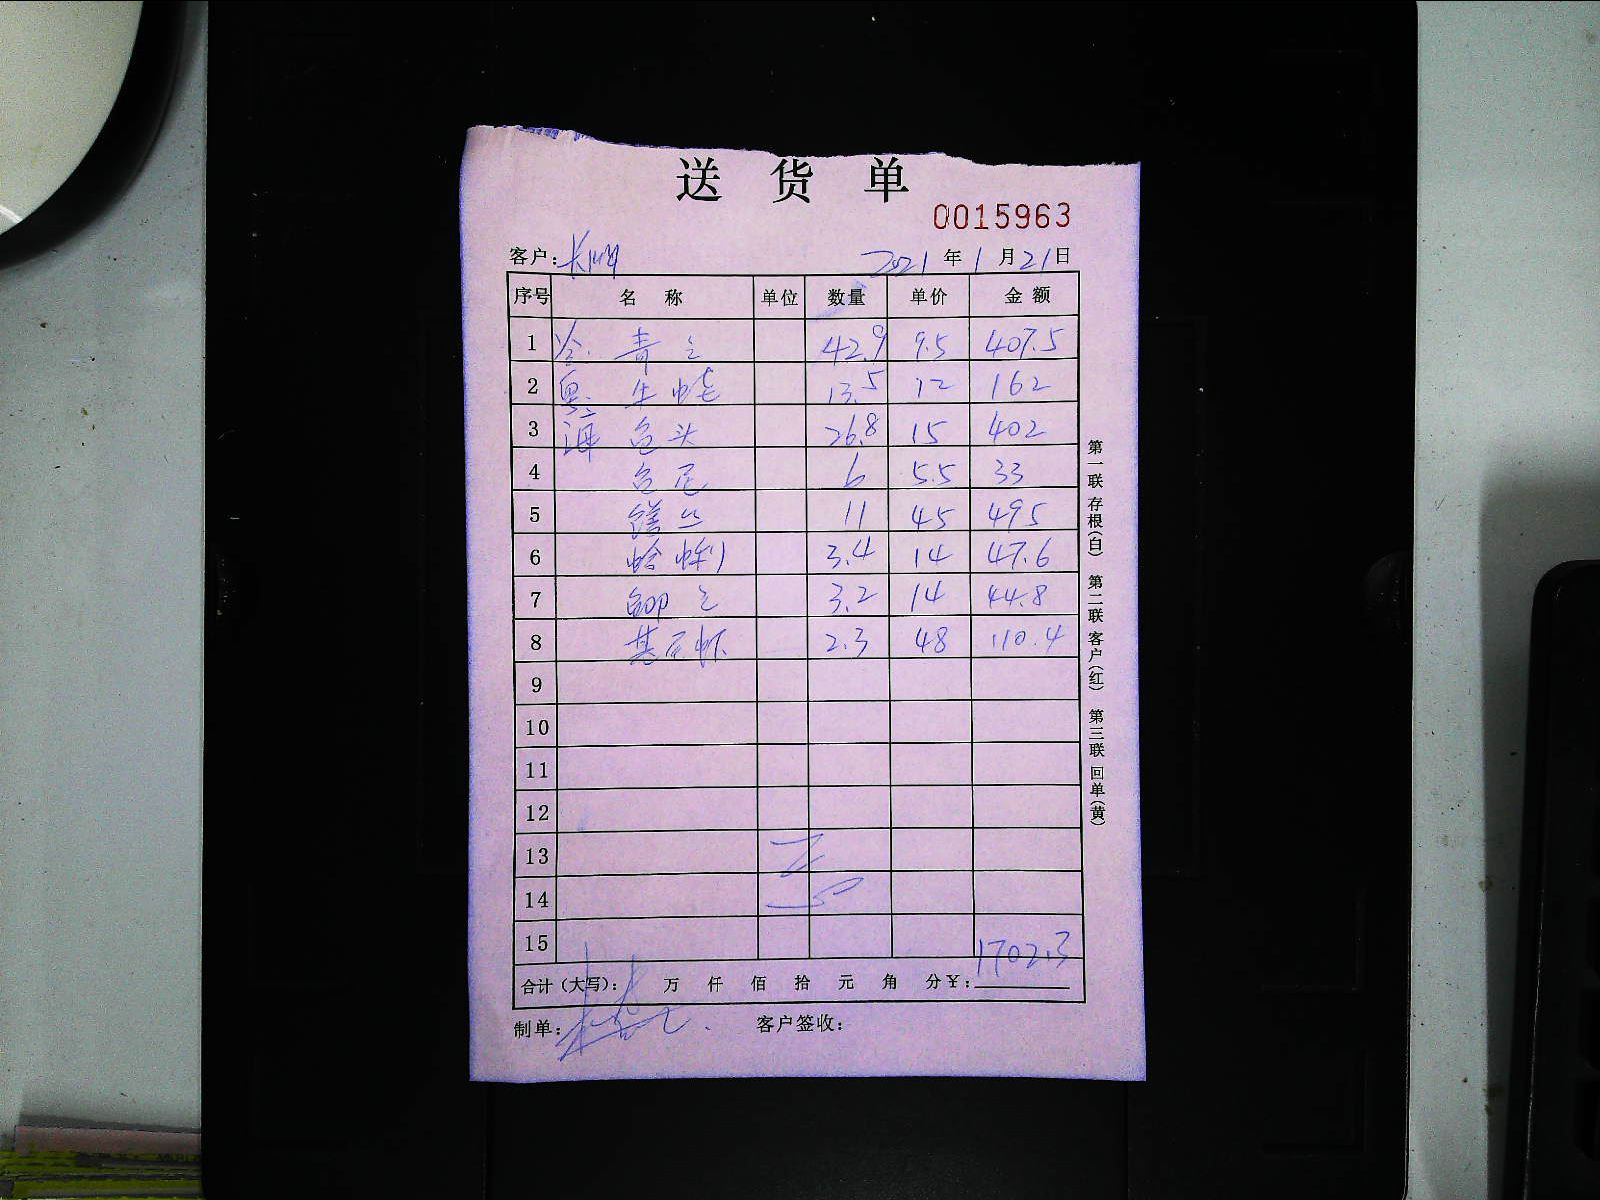 送货单
0015963
客户: 2021年1月21日
序号 名称 单位 数量 单价 金额
1 青 42.9 9.5 407.5
2 生蚝 13.5 12 162
3 海 鱼头 26.8 15 402
4 鱼尾 6 5.5 33
5 11 45 495
6 蛤蜊 3.4 14 47.6
7 3.2 14 44.8
8 基尾虾 2.3 48 110.4
9
10
11
12
13
14
15
合计(大写): 万 仟 佰 拾 元 角 分¥: 1702.3
制单: 客户签收:
第一联 存根(白) 第二联 客户(红) 第三联 回单(黄)